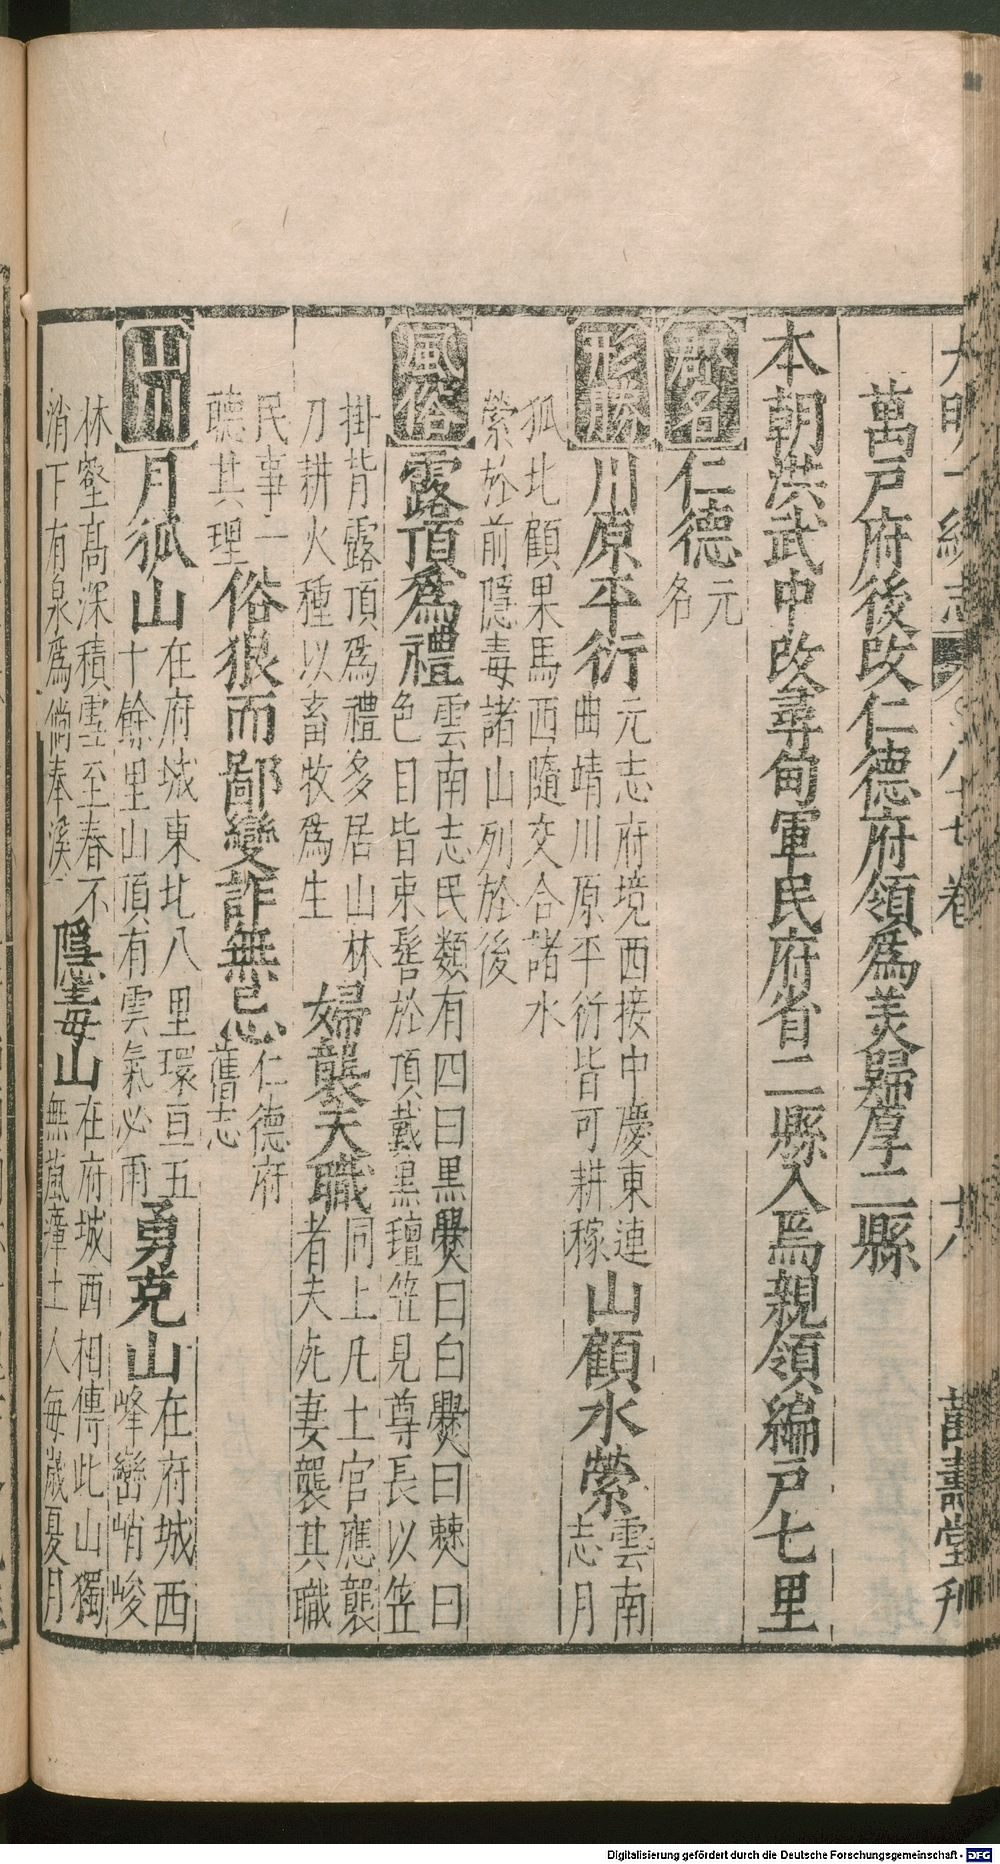 大明一統志 八十七卷 十八 萬壽堂刊
萬戸府後改仁德府領爲美歸厚二縣
本朝洪武中改尋甸軍民府省二縣入焉親領編戸七里
郡名 仁德元名
形勝 川原平衍元志府境西接中慶東連曲靖川原平衍皆可耕稼山顧水縈雲南志月
狐北顧果馬西隨交合諸水縈於前隱毒諸山列於後
風俗 露頂爲禮雲南志民類有四曰黒爨曰白爨曰僰曰色目皆束髻於頂戴黒氊笠見尊長以笠
掛背露頂爲禮多居山林刀耕火種以畜牧爲生婦襲夫職同上凡土官應襲者夫死妻襲其職
民事一聽其理俗狠而鄙變詐無忌仁德府舊志
山川 月狐山在府城東北八里環亘五十餘里山頂有雲氣必雨勇克山在府城西峰巒峭峻
林壑高深積雪至春不消下有泉爲倘奉溪隱毒山在府城西相傳此山獨無嵐瘴土人每歲夏月
Digitalisierung gefördert durch die Deutsche Forschungsgemeinschaft - DFG